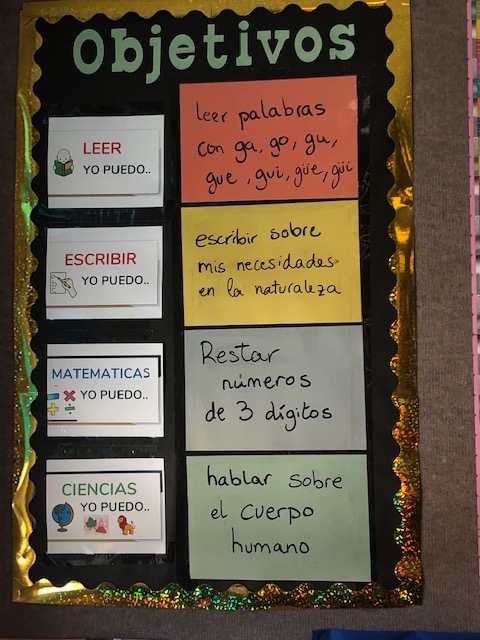 Objetivos
LEER
YO PUEDO..
leer palabras
con ga, go, gu,
gue, gui, güe, güi
ESCRIBIR
YO PUEDO..
escribir sobre
mis necesidades
en la naturaleza
MATEMATICAS
YO PUEDO..
Restar
números
de 3 dígitos
CIENCIAS
YO PUEDO..
hablar sobre
el cuerpo
humano